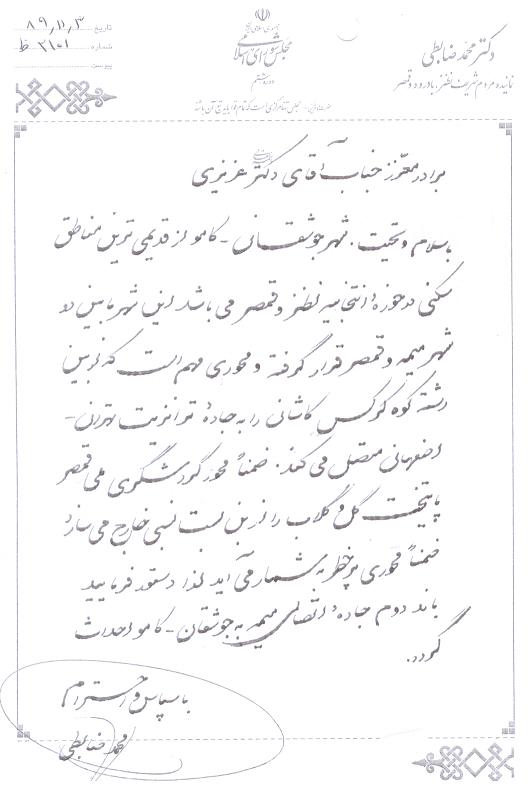 جمهوری اسلامی ایران
مجلس شورای اسلامی
دوره هشتم
تاریخ ۸۹,۱۱,۳
شماره ۲۱۰۱ ظ
پیوست
دکتر محمد ضابطی
نماینده مردم شریف نطنز، بادرود و قمصر
برادر معزز جناب آقای دکتر عزیزی
باسلام و تحیت. شهر جوشقان - کامو از قدیمی ترین مناطق
سکنی در حوزه انتخابیه نطنز و قمصر می باشد این شهر مابین دو
شهر میمه و قمصر قرار گرفته و محوری مهم است که از بین
رشته کوه کرکس کاشان را به جاده ترانزیت تهران -
اصفهان متصل می کند. ضمناً محور گردشگری ملی قمصر
پایتخت گل و گلاب را از بن بست نسبی خارج می سازد
ضمناً محوری پرخطر به شمار می آید لذا دستور فرمایید
باند دوم جاده اتصالی میمه به جوشقان - کامو احداث
گردد.
باسپاس و احترام
محمد ضابطی